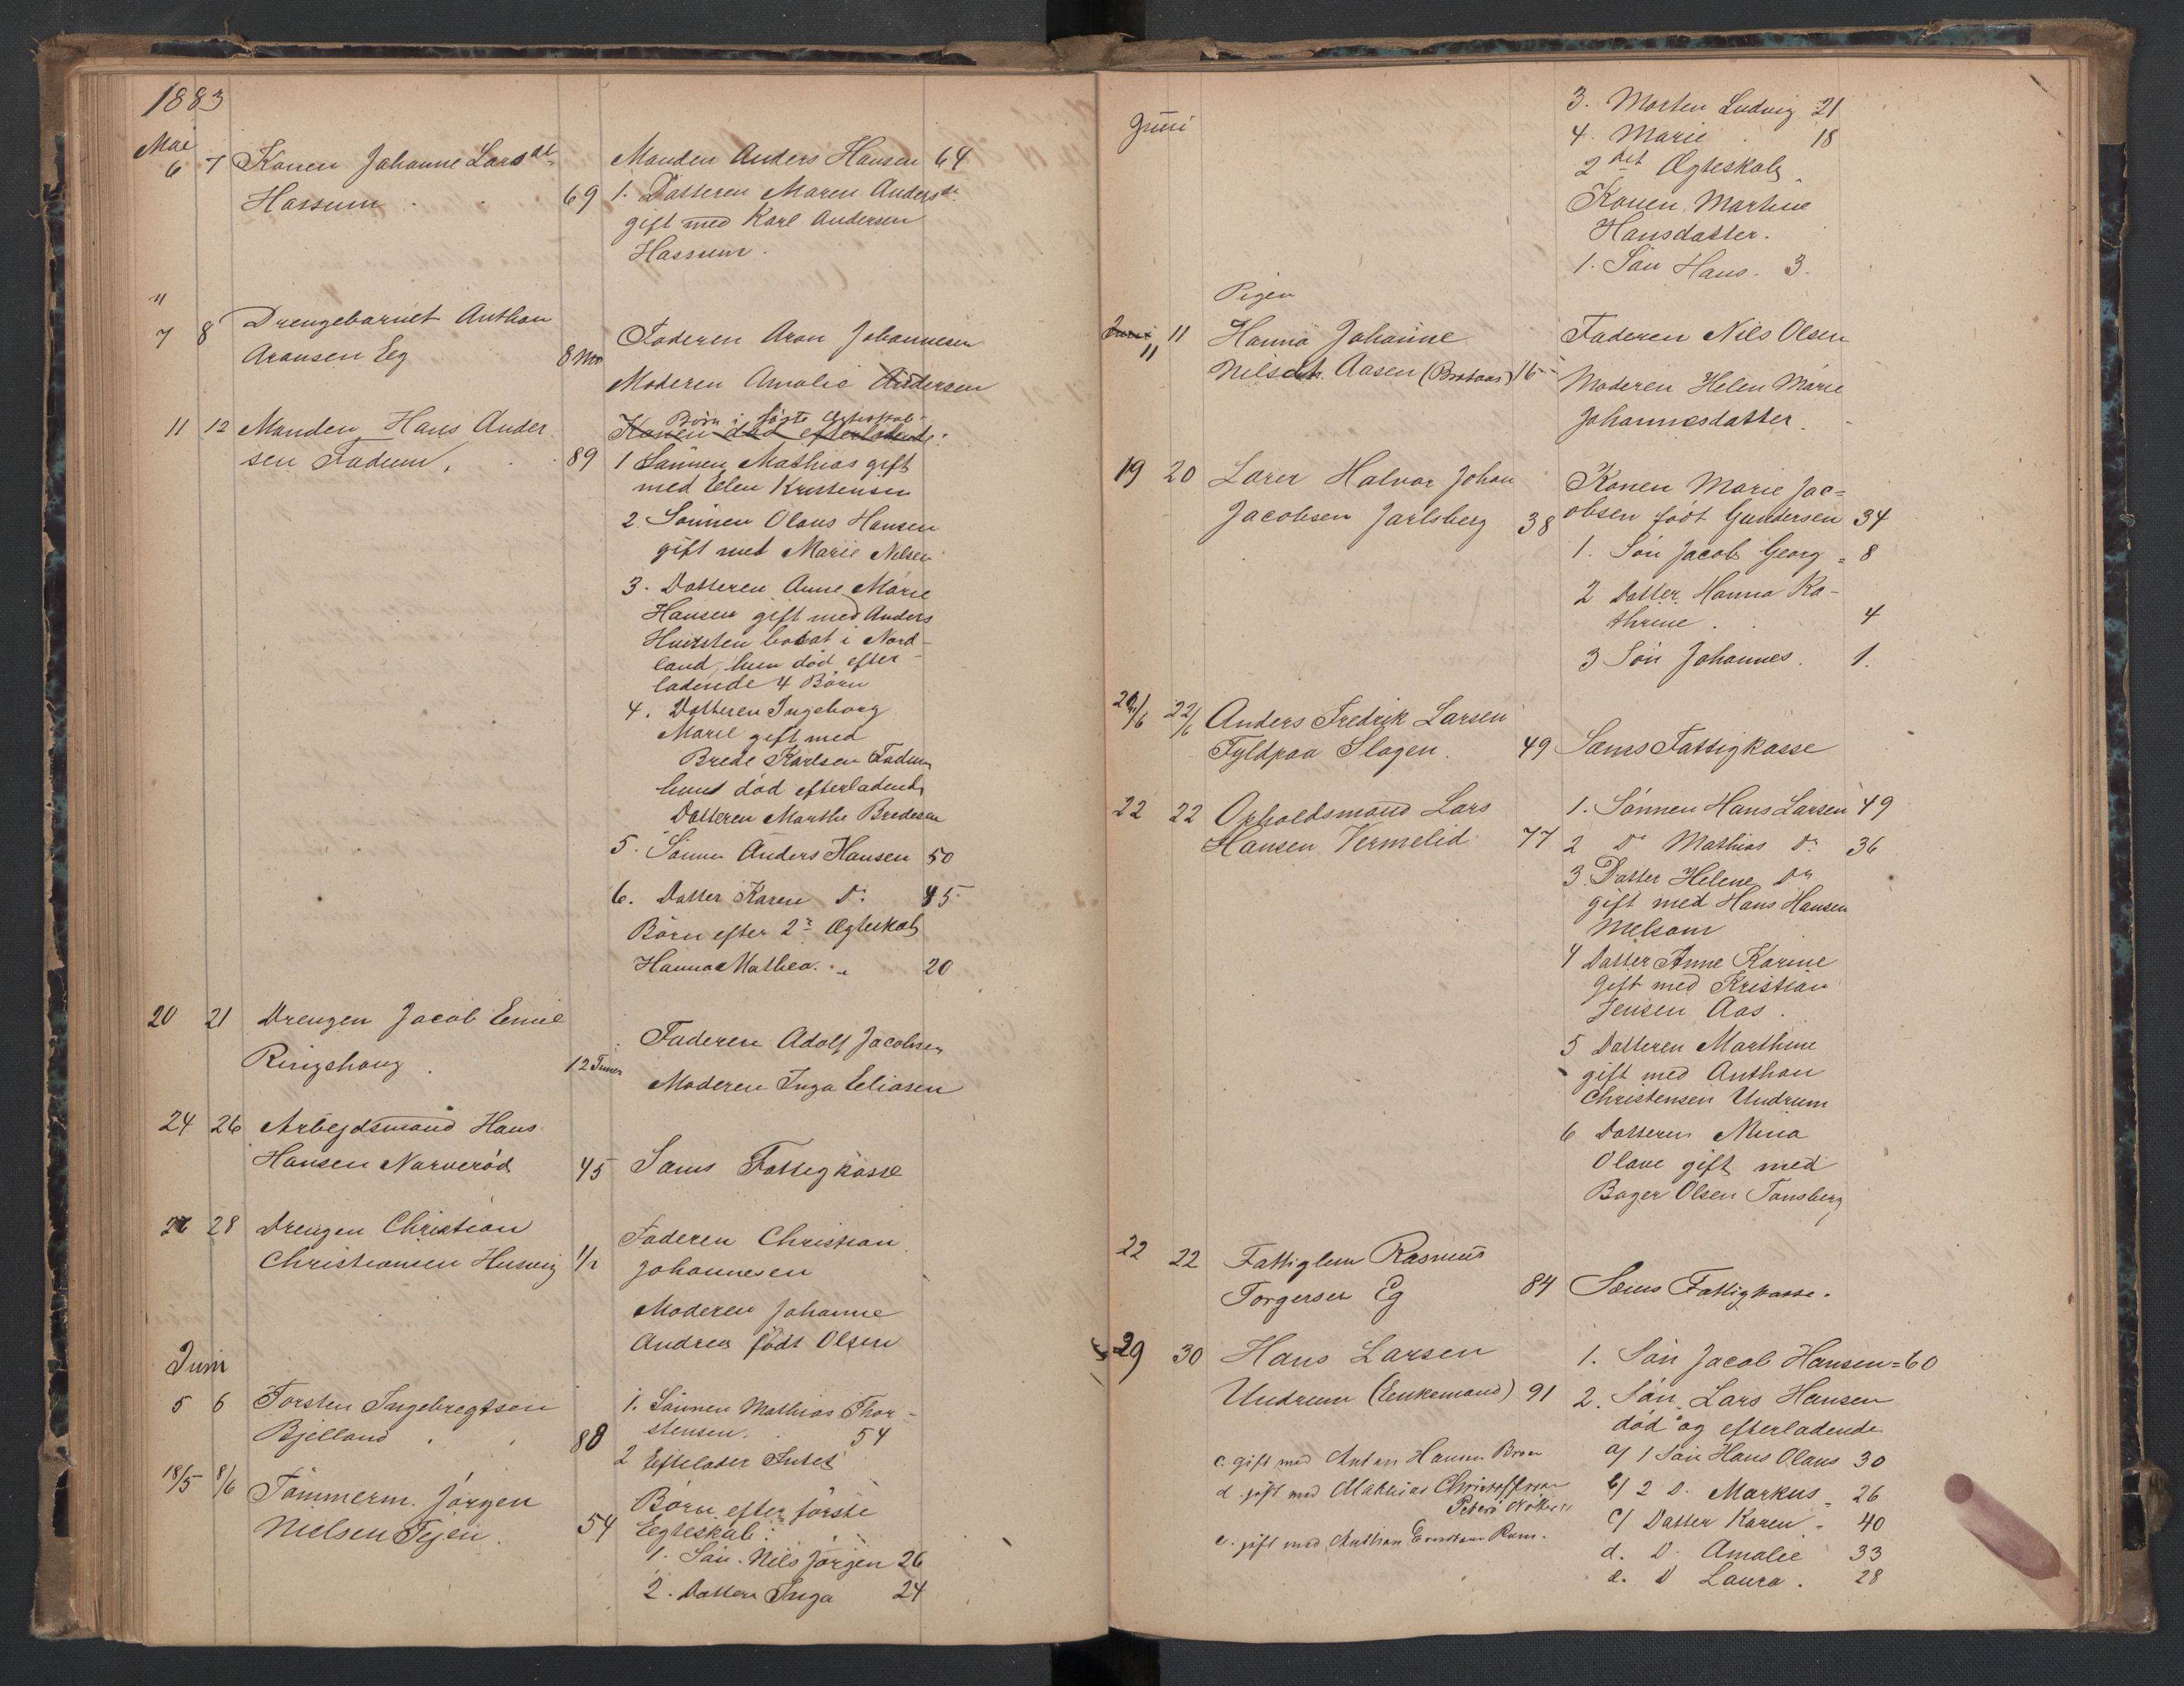 1883
Mai
6 7 Konen Johanne Larsdt
Hassum 69
Manden Anders Hansen 64
1. Datteren Maren Andersdt.
gift med Karl Andersen
Hassum.
"
7 8 Drengebarnet Anthon
Aronsen Eeg 8 Mo
Faderen Aron Johannesen
Moderen Amalie Andersen
11 12 Manden Hans Ander
sen Fadum. 89
Børn i første Ægteskab
Konen død efterladende:
1 Sønnen Mathias gift
med Elen Kristensen
2. Sønnen Olaus Hansen
gift med Marie Nilsen
3. Datteren Anne Marie
Hansen gift med Anders
bosat i Nord-
land, hun død efter-
ladende 4 Børn
4. Datteren Ingeborg
Marie gift med
Brede Karlsen Fadum
hund død efterladende
Datteren Marthe Bredesen
5. Sønnen Anders Hansen 50
6. Datter Karen Do 45
Børn efter 2det Ægteskab
Hanna Mathea. 20
20 21 Drengen Jacob Emil
Ringshaug 12 Timer
Faderen Adolf Jacobsen
Moderen Inga Eliasen
24 26 Arbejdsmand Hans
Hansen Narverød 45
Sems Fattigkasse
28 Drengen Christian
Christiansen Husvig 1/2
Faderen Christian
Johannesen
Moderen Johanne
Andrea født Olsen
Juni
5 6 Torsten Ingebregtsen
Bjelland 88
1. Sønnen Mathias Thor-
stensen. 54
2 Efterlader Intet
18/5 8/6 Tømmerm. Jørgen
Nielsen Tejen. 54
Børn efter første
Egteskab:
1. Søn. Nils Jørgen 26
2. Datter Inga 24
Juni
3. Morten Ludvig 21
4. Marie 18
2det Ægteskab
Konen Martine
Hansdatter.
1. Søn Hans. 3.
Pigen
Juni 11 11 Hanna Johanne
Nilsdt. Aasen (Brataas) 16
Faderen Nils Olsen
Moderen Helen Marie
Johannesdatter.
19 20 Lærer Halvor Johan
Jacobsen Jarlsberg 38
Konen Marie Jac=
obsen født Gundersen 34
1. Søn Jacob Georg = 8
2 Datter Hanna Ka-
thrine. 4
3 Søn Johannes. 1.
22/6 Anders Fredrik Larsen
Fyldpaa Slagen. 49
Sems Fattigkasse
22 22 Opholdsmand Lars
Hansen Vermelid 77
1. Sønnen Hans Larsen 49
2 Do Mathias Do 36
3. Datter Helene Do
gift med Hans Hansen
Melsom
4 Datter Anne Karine
gift med Kristian
Jensen Aas.
5 Datteren Marthine
gift med Anthon
Christensen Undrum
6 Datteren Mina
Olave gift med
Bager Olsen Tønsberg
22 22 Fattiglem Rasmus
Torgersen Eg 84
Sems Fattigkasse.
29 30 Hans Larsen
Undrum (Enkemand) 91
1. Søn Jacob Hansen = 60
2. Søn Lars Hansen
død og efterladende
a/ 1 Søn Hans Olaus 30
b/ 2 D. Markus 26
c/ Datter Karen 40
d. D. Amalie 33
e. D Laura. 28
c. gift med Anton Hansen
d. gift med Mathias Christoffersen
e. gift med Anthon